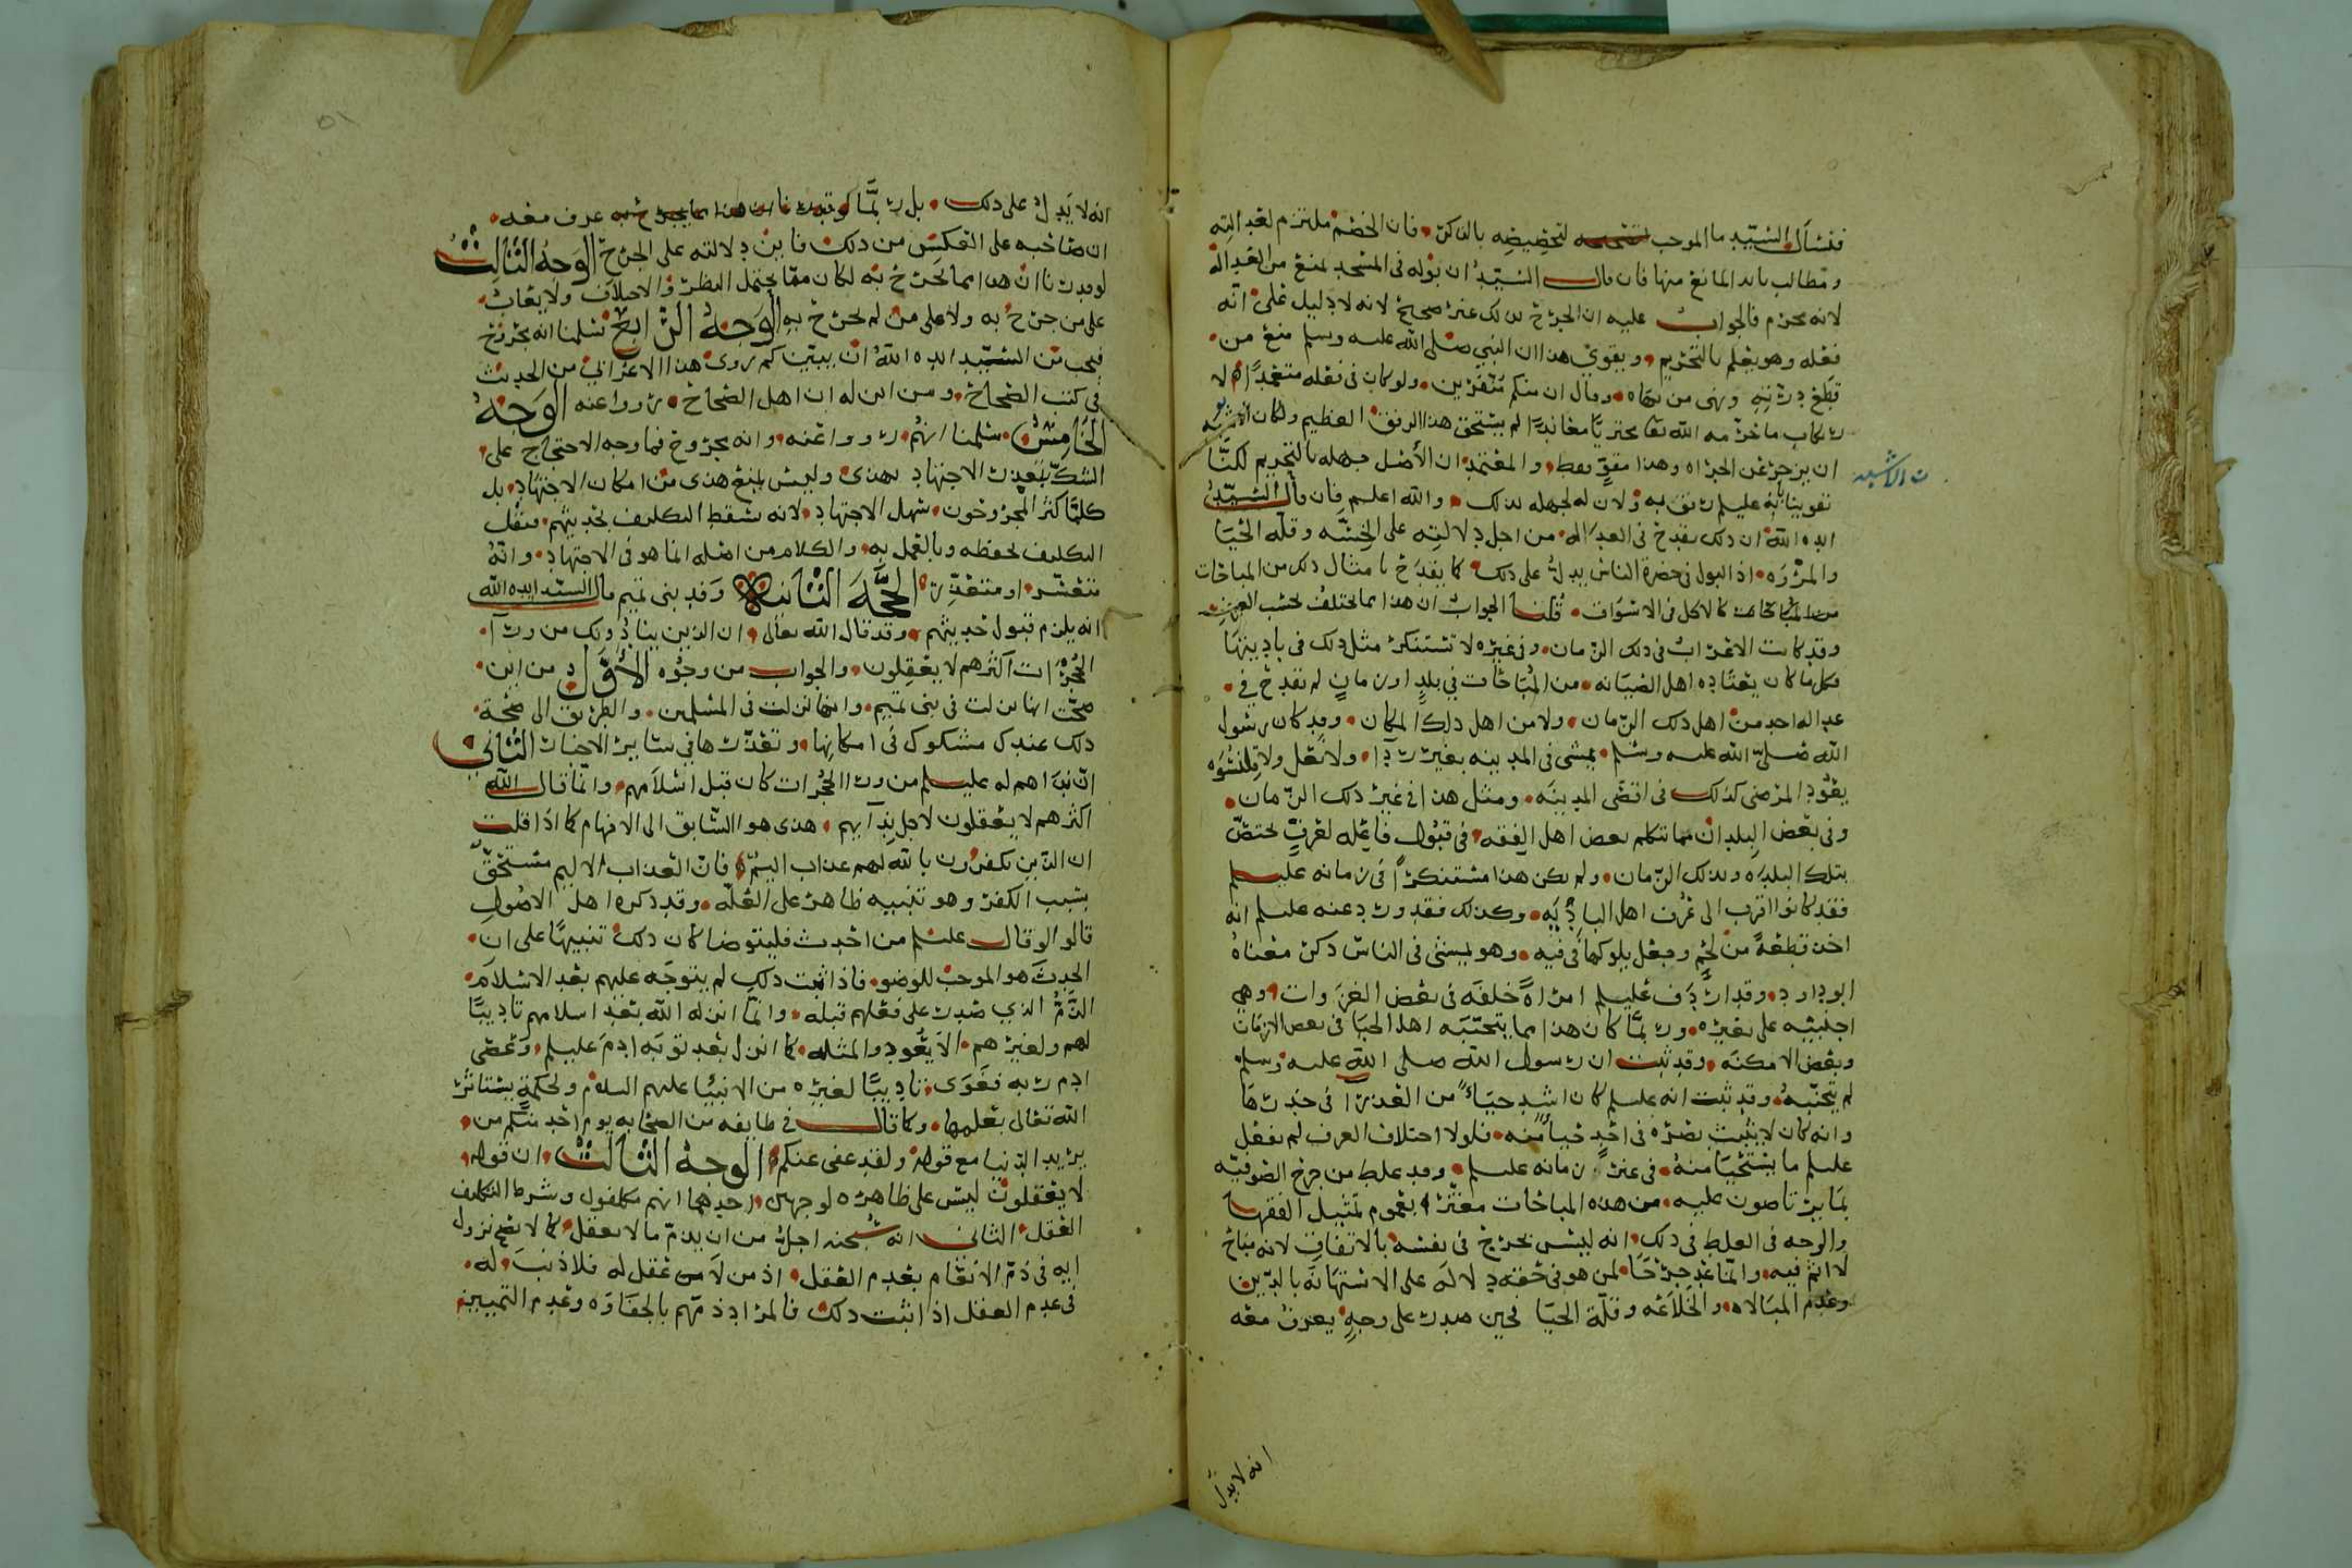 فنسأل السيد ما الموجب لتخصيصه بالذكر فان الخصم ملتزم لعدالته
ومطالب بابدا المانع منها فان قال السيد ان بوله في المسجد يمنع من العدالة
لانه محرم فالجواب عليه ان الجرح بذلك غير صحيح لانه لا دليل على انه
فعله وهو يعلم بالتحريم ويقوي هذا ان النبي صلى الله عليه وسلم منع من
قطع درته ونهى من نهاه وقال ان منكم منفرين ولو كان في فعله متعمدا لا
رتكاب ما حرمه الله تعا مجتريا معاندا لم يستحق هذا الرفق العظيم ولكان الاشبه
ان يزجر عن الجراه وهذا مقو فقط والمعتمد ان الأصل جهله بالتحريم لكنا
قوينا بانه عليلم رفق به ولان له لجهله بذلك والله اعلم فان قال السيد
ايده الله ان ذلك يقدح في العداله من اجل دلالته على الخسه وقلة الحيا
والمروه اذ البول في حضرة الناس يدل على ذلك كما يقدح بامثال ذلك من المباحات
كالاكل في الاسواق قلنا الجواب ان هذا مما يختلف بحسب العرف
وقد كانت الاعراب في ذلك الزمان وفي غيره لا تستنكر مثل ذلك في باديتها
وكل ما كان يعتاده اهل الصيانه من المباحات في بلد او زمان لم يقدح في
عداله احد من اهل ذلك الزمان ولا من اهل ذلك المكان وقد كان رسول
الله صلى الله عليه وسلم يمشي في المدينه بغير ردا ولا نعل ولا قلنسوه
يعود المرضى كذلك في اقصى المدينه ومثل هذا في غير ذلك الزمان
وفي بعض البلدان مما تكلم بعض اهل الفقه في قبول فاعله لعرف يختص
بتلك البلده وبذلك الزمان ولم يكن هذا مستنكرا في زمانه عليلم
فقد كانوا اقرب الى عرف اهل الباديه وكذلك فقد ورد عنه عليلم انه
اخذ قطعة من لحم وجعل يلوكها في فيه وهو يمشي في الناس ذكر معناه
ابو داود وقد اردف عليلم امراة خلفه في بعض الغزوات وهي
اجنبيه على بعيره وربما كان هذا مما يتجنبه اهل الحيا في بعض الازمان
وبعض الامكنه وقد ثبت ان رسول الله صلى الله عليه وسلم
لم يتجنبه وقد ثبت انه عليلم كان اشد حياء من العذرا في خدرها
وانه كان لا يثبت بصره في احد حياء منه فلولا اختلاف العرف لم يفعل
عليلم ما يستحيا منه في غير زمانه عليلم وقد غلط من جرح الصوفيه
بما يرتاضون عليه من هذه المباحات مغترا بعموم تمثيل الفقها
والوجه في الغلط في ذلك انه ليس بجرح في نفسه بالاتفاق لانه مباح
لا اثم فيه وانما عد جرحا لمن هو في حقه دلالة على الاستهانه بالدين
وعدم المبالاه والخلاعه وقلة الحيا فحين صدرت على وجه يعرف معه
انه لا يدل
انه لا يدل على ذلك بل ربما عرف معه
ان صاحبه على العكس من ذلك فاين دلالته على الجرح الوجه الثالث
لو قدرنا ان هذا مما يجرح به لكان مما يحتمل النظر والاختلاف ولا يعاب
على من جرح به ولا على من لم يجرح به الوجه الرابع سلمنا انه مجروح
فيجب من السيد ايده الله ان يبين كم روى هذا الاعرابي من الحديث
في كتب الصحاح ومن اين له ان اهل الصحاح رووا عنه الوجه
الخامس سلمنا انهم رووا عنه وانه مجروح فما وجه الاحتجاج على
الشك بتعذر الاجتهاد بهذا وليس يمنع هذا من امكان الاجتهاد بل
كلما كثر المجروحون سهل الاجتهاد لانه يسقط التكليف بحديثهم فيقل
التكليف بحفظه وبالعمل به والكلام من اصله انما هو في الاجتهاد وانه
متعسر او متعذر الحجة الثانية وفد بني تميم قال السيد ايده الله
انه يلزم قبول حديثهم وقد قال الله تعالى ان الذين ينادونك من ورآ
الحجرات اكثرهم لا يعقلون والجواب من وجوه الأول من اين
صحت انها نزلت في بني تميم وانها نزلت في المسلمين والطريق الى صحة
ذلك عندك مشكوك في امكانها وتعذرها في سائر الاخبار الثاني
ان نداهم له عليلم من ورا الحجرات كان قبل اسلامهم وانما قال الله
اكثرهم لا يعقلون لاجل ندآيهم هذا هو السابق الى الافهام كما اذا قلت
ان الذين يكفرون بالله لهم عذاب اليم فان العذاب الاليم مستحق
بسبب الكفر وهو تنبيه ظاهر على العله وقد ذكره اهل الاصول
قالوا لو قال عليلم من احدث فليتوضا كان ذلك تنبيها على ان
الحدث هو الموجب للوضو فاذا ثبت ذلك لم يتوجه عليهم بعد الاسلام
الذم الذي صدر على فعلهم قبله وانما انزله الله بعد اسلامهم تاديبا
لهم ولغيرهم الا يعودوا لمثله كما انزل بعد توبه ادم عليلم وعصى
ادم ربه فغوى تاديبا لغيره من الانبيا عليهم السلام ولحكمة يستاثر
الله تعالى بعلمها وكما قال في طايفه من الصحابه يوم احد منكم من
يريد الدنيا مع قوله ولقد عفى عنكم الوجه الثالث ان قوله
لا يعقلون ليس على ظاهره لوجهين احدهما انهم مكلفون وشرط التكليف
العقل الثاني انه سبحنه اجل من ان يذم ما لا يعقل كما لا يصح نزول
ايه في ذم الانعام بعدم العقل اذ من لا عقل له فلا ذنب له
في عدم العقل اذا ثبت ذلك فالمراد ذمهم بالجفاوه وعدم التمييز